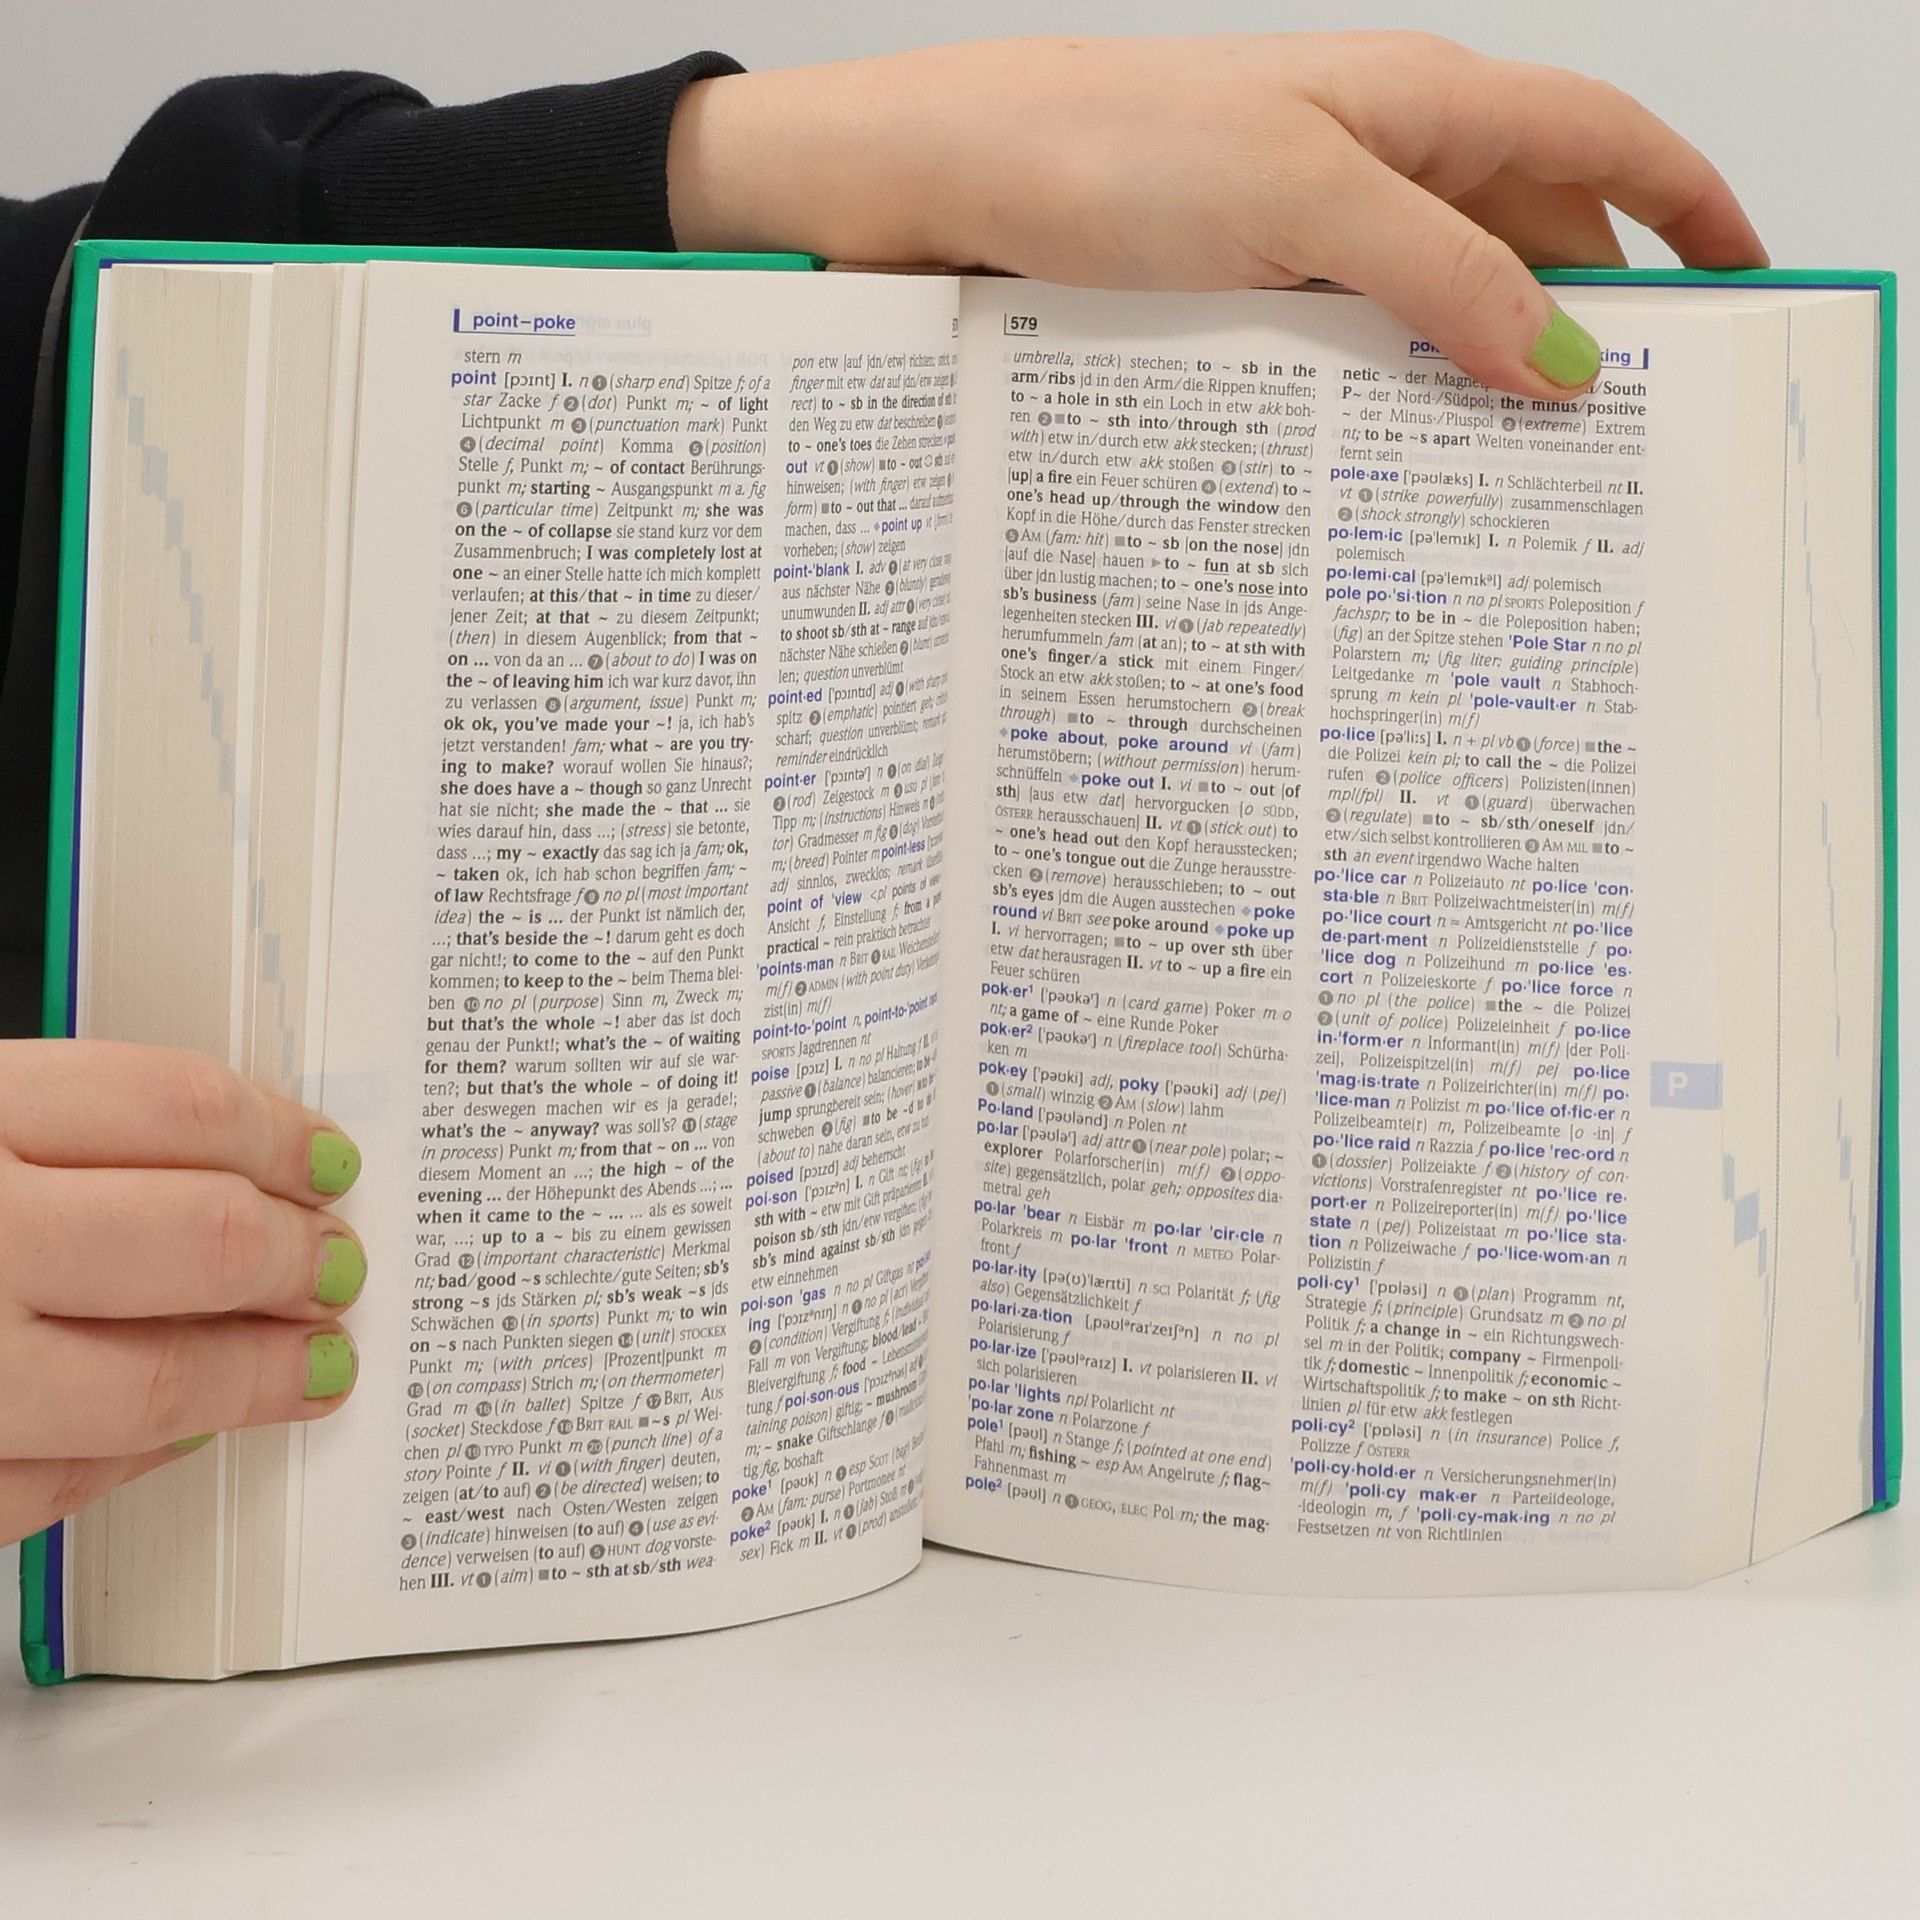 point–poke
stern m
point [pɔɪnt] I. n ❶ (sharp end) Spitze f; of a
star Zacke f ❷ (dot) Punkt m; ~ of light
Lichtpunkt m ❸ (punctuation mark) Punkt
❹ (decimal point) Komma ❺ (position)
Stelle f, Punkt m; ~ of contact Berührungs-
punkt m; starting ~ Ausgangspunkt m a. fig
❻ (particular time) Zeitpunkt m; she was
on the ~ of collapse sie stand kurz vor dem
Zusammenbruch; I was completely lost at
one ~ an einer Stelle hatte ich mich komplett
verlaufen; at this/that ~ in time zu dieser/
jener Zeit; at that ~ zu diesem Zeitpunkt;
(then) in diesem Augenblick; from that ~
on ... von da an ... ❼ (about to do) I was on
the ~ of leaving him ich war kurz davor, ihn
zu verlassen ❽ (argument, issue) Punkt m;
ok ok, you've made your ~! ja, ich hab's
jetzt verstanden! fam; what ~ are you try-
ing to make? worauf wollen Sie hinaus?;
she does have a ~ though so ganz Unrecht
hat sie nicht; she made the ~ that ... sie
wies darauf hin, dass ...; (stress) sie betonte,
dass ...; my ~ exactly das sag ich ja fam; ok,
~ taken ok, ich hab schon begriffen fam; ~
of law Rechtsfrage f ❾ no pl (most important
idea) the ~ is ... der Punkt ist nämlich der,
...; that's beside the ~! darum geht es doch
gar nicht!; to come to the ~ auf den Punkt
kommen; to keep to the ~ beim Thema blei-
ben ❿ no pl (purpose) Sinn m, Zweck m;
but that's the whole ~! aber das ist doch
genau der Punkt!; what's the ~ of waiting
for them? warum sollten wir auf sie war-
ten?; but that's the whole ~ of doing it!
aber deswegen machen wir es ja gerade!;
what's the ~ anyway? was soll's? ⓫ (stage
in process) Punkt m; from that ~ on ... von
diesem Moment an ...; the high ~ of the
evening ... der Höhepunkt des Abends ...; ...
when it came to the ~ ... ... als es soweit
war, ...; up to a ~ bis zu einem gewissen
Grad ⓬ (important characteristic) Merkmal
nt; bad/good ~s schlechte/gute Seiten; sb's
strong ~s jds Stärken pl; sb's weak ~s jds
Schwächen ⓭ (in sports) Punkt m; to win
on ~s nach Punkten siegen ⓮ (unit) STOCKEX
Punkt m; (with prices) [Prozent]punkt m
⓯ (on compass) Strich m; (on thermometer)
Grad m ⓰ (in ballet) Spitze f ⓱ BRIT, AUS
(socket) Steckdose f ⓲ BRIT RAIL ■~s pl Wei-
chen pl ⓳ TYPO Punkt m ⓴ (punch line) of a
story Pointe f II. vi ❶ (with finger) deuten,
zeigen (at/to auf) ❷ (be directed) weisen; to
~ east/west nach Osten/Westen zeigen
❸ (indicate) hinweisen (to auf) ❹ (use as evi-
dence) verweisen (to auf) ❺ HUNT dog vorste-
hen III. vt ❶ (aim) ■to ~ sth at sb/sth wea-
pon etw [auf jdn/etw] richten;
finger mit etw dat auf jdn/etw zeigen
rect) to ~ sb in the direction of
den Weg zu etw dat beschreiben
to ~ one's toes die Zehen strecken
out vt ❶ (show) ■to ~ out
hinweisen; (with finger) etw zeigen
form) ■to ~ out that ... darauf
machen, dass ... ◆point up vt
vorheben; (show) zeigen
point-'blank I. adv ❶ (at very close
aus nächster Nähe ❷ (bluntly)
unumwunden II. adj attr ❶ (very close
to shoot sb/sth at ~ range auf jdn/
nächster Nähe schießen ❷
len; question unverblümt
point·ed ['pɔɪntɪd] adj ❶ (with sharp
spitz ❷ (emphatic) pointiert geh;
scharf; question unverblümt;
reminder eindrücklich
point·er ['pɔɪntəʳ] n ❶ (on dial)
❷ (rod) Zeigestock m ❸ usu pl
Tipp m; (instructions) Hinweis m
tor) Gradmesser m fig ❺ (dog)
m; (breed) Pointer m point·less
adj sinnlos, zwecklos; remark
point of 'view <pl points of view>
Ansicht f, Einstellung f; from a
practical ~ rein praktisch betrachtet
'points·man n BRIT ❶ RAIL
m(f) ❷ ADMIN (with point duty)
zist(in) m(f)
point-to-'point n, point-to-'point
SPORTS Jagdrennen nt
poise [pɔɪz] I. n no pl Haltung f II.
passive ❶ (balance) balancieren; to be
jump sprungbereit sein; (hover)
schweben ❷ (fig) ■to be ~d to
(about to) nahe daran sein, etw zu
poised [pɔɪzd] adj beherrscht
poi·son ['pɔɪzᵊn] I. n Gift nt;
sth with ~ etw mit Gift präparieren
poison sb/sth jdn/etw vergiften;
sb's mind against sb/sth jdn gegen
etw einnehmen
poi·son 'gas n no pl Giftgas nt
ing ['pɔɪzᵊnɪŋ] n ❶ no pl (act)
❷ (condition) Vergiftung f;
Fall m von Vergiftung; blood/lead
Bleivergiftung f; food ~
tung f poi·son·ous ['pɔɪzᵊnəs] adj
taining poison) giftig; ~ mushroom
m; ~ snake Giftschlange f ❷
tig fig, boshaft
poke¹ [pəʊk] n ❶ esp SCOT (bag)
❷ AM (fam: purse) Portmonee nt
poke² [pəʊk] I. n ❶ (jab) Stoß m
sex) Fick m II. vt ❶ (prod)
579
king
umbrella, stick) stechen; to ~ sb in the
arm/ribs jd in den Arm/die Rippen knuffen;
to ~ a hole in sth ein Loch in etw akk boh-
ren ❷ ■to ~ sth into/through sth (prod
with) etw in/durch etw akk stecken; (thrust)
etw in/durch etw akk stoßen ❸ (stir) to ~
[up] a fire ein Feuer schüren ❹ (extend) to ~
one's head up/through the window den
Kopf in die Höhe/durch das Fenster strecken
❺ AM (fam: hit) ■to ~ sb [on the nose] jdn
[auf die Nase] hauen ▶to ~ fun at sb sich
über jdn lustig machen; to ~ one's nose into
sb's business (fam) seine Nase in jds Ange-
legenheiten stecken III. vi ❶ (jab repeatedly)
herumfummeln fam (at an); to ~ at sth with
one's finger/a stick mit einem Finger/
Stock an etw akk stoßen; to ~ at one's food
in seinem Essen herumstochern ❷ (break
through) ■to ~ through durchscheinen
◆poke about, poke around vi (fam)
herumstöbern; (without permission) herum-
schnüffeln ◆poke out I. vi ■to ~ out [of
sth] [aus etw dat] hervorgucken [o SÜDD,
ÖSTERR herausschauen] II. vt ❶ (stick out) to
~ one's head out den Kopf herausstecken;
to ~ one's tongue out die Zunge herausstre-
cken ❷ (remove) herausschieben; to ~ out
sb's eyes jdm die Augen ausstechen ◆poke
round vi BRIT see poke around ◆poke up
I. vi hervorragen; ■to ~ up over sth über
etw dat herausragen II. vt to ~ up a fire ein
Feuer schüren
pok·er¹ ['pəʊkəʳ] n (card game) Poker m o
nt; a game of ~ eine Runde Poker
pok·er² ['pəʊkəʳ] n (fireplace tool) Schürha-
ken m
pok·ey ['pəʊki] adj, poky ['pəʊki] adj (pej)
❶ (small) winzig ❷ AM (slow) lahm
Po·land ['pəʊlənd] n Polen nt
po·lar ['pəʊləʳ] adj attr ❶ (near pole) polar; ~
explorer Polarforscher(in) m(f) ❷ (oppo-
site) gegensätzlich, polar geh; opposites dia-
metral geh
po·lar 'bear n Eisbär m po·lar 'cir·cle n
Polarkreis m po·lar 'front n METEO Polar-
front f
po·lar·ity [pə(ʊ)'lærɪti] n SCI Polarität f; (fig
also) Gegensätzlichkeit f
po·lari·za·tion [pəʊlᵊraɪ'zeɪʃᵊn] n no pl
Polarisierung f
po·lar·ize ['pəʊlᵊraɪz] I. vt polarisieren II. vi
sich polarisieren
po·lar 'lights npl Polarlicht nt
'po·lar zone n Polarzone f
pole¹ [pəʊl] n Stange f; (pointed at one end)
Pfahl m; fishing ~ esp AM Angelrute f; flag~
Fahnenmast m
pole² [pəʊl] n ❶ GEOG, ELEC Pol m; the mag-
netic ~ der Magnet /South
P~ der Nord-/Südpol; the minus/positive
~ der Minus-/Pluspol ❷ (extreme) Extrem
nt; to be ~s apart Welten voneinander ent-
fernt sein
pole·axe ['pəʊlæks] I. n Schlächterbeil nt II.
vt ❶ (strike powerfully) zusammenschlagen
❷ (shock strongly) schockieren
po·lem·ic [pə'lemɪk] I. n Polemik f II. adj
polemisch
po·lemi·cal [pə'lemɪkᵊl] adj polemisch
pole po·'si·tion n no pl SPORTS Poleposition f
fachspr; to be in ~ die Poleposition haben;
(fig) an der Spitze stehen 'Pole Star n no pl
Polarstern m; (fig liter: guiding principle)
Leitgedanke m 'pole vault n Stabhoch-
sprung m kein pl 'pole-vault·er n Stab-
hochspringer(in) m(f)
po·lice [pə'li:s] I. n + pl vb ❶ (force) ■the ~
die Polizei kein pl; to call the ~ die Polizei
rufen ❷ (police officers) Polizisten(innen)
mpl(fpl) II. vt ❶ (guard) überwachen
❷ (regulate) ■to ~ sb/sth/oneself jdn/
etw/sich selbst kontrollieren ❸ AM MIL ■to ~
sth an event irgendwo Wache halten
po·'lice car n Polizeiauto nt po·lice 'con·
sta·ble n BRIT Polizeiwachtmeister(in) m(f)
po·'lice court n ≈ Amtsgericht nt po·'lice
de·part·ment n Polizeidienststelle f po·
'lice dog n Polizeihund m po·lice 'es·
cort n Polizeieskorte f po·'lice force n
❶ no pl (the police) ■the ~ die Polizei
❷ (unit of police) Polizeieinheit f po·lice
in·'form·er n Informant(in) m(f) [der Poli-
zei], Polizeispitzel(in) m(f) pej po·lice
'mag·is·trate n Polizeirichter(in) m(f) po·
'lice·man n Polizist m po·'lice of·fic·er n
Polizeibeamte(r) m, Polizeibeamte [o -in] f
po·'lice raid n Razzia f po·lice 'rec·ord n
❶ (dossier) Polizeiakte f ❷ (history of con-
victions) Vorstrafenregister nt po·'lice re·
port·er n Polizeireporter(in) m(f) po·'lice
state n (pej) Polizeistaat m po·'lice sta·
tion n Polizeiwache f po·'lice·wom·an n
Polizistin f
poli·cy¹ ['pɒləsi] n ❶ (plan) Programm nt,
Strategie f; (principle) Grundsatz m ❷ no pl
Politik f; a change in ~ ein Richtungswech-
sel m in der Politik; company ~ Firmenpoli-
tik f; domestic ~ Innenpolitik f; economic ~
Wirtschaftspolitik f; to make ~ on sth Richt-
linien pl für etw akk festlegen
poli·cy² ['pɒləsi] n (in insurance) Police f,
Polizze f ÖSTERR
'poli·cy·hold·er n Versicherungsnehmer(in)
m(f) 'poli·cy mak·er n Parteiideologe,
-ideologin m, f 'poli·cy-mak·ing n no pl
Festsetzen nt von Richtlinien
P